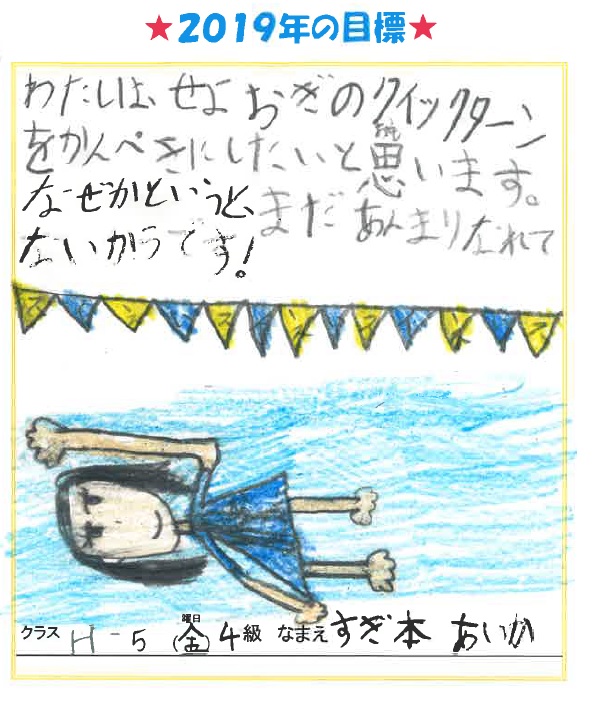 ★2019年の目標★
わたしは、せよおぎのクイックターン
をかんぺきにしたいと思います。
なぜかというと、まだあんまりなれて
ないからです!
クラス H-5 曜日(金) 4級 なまえ すぎ本 あいか